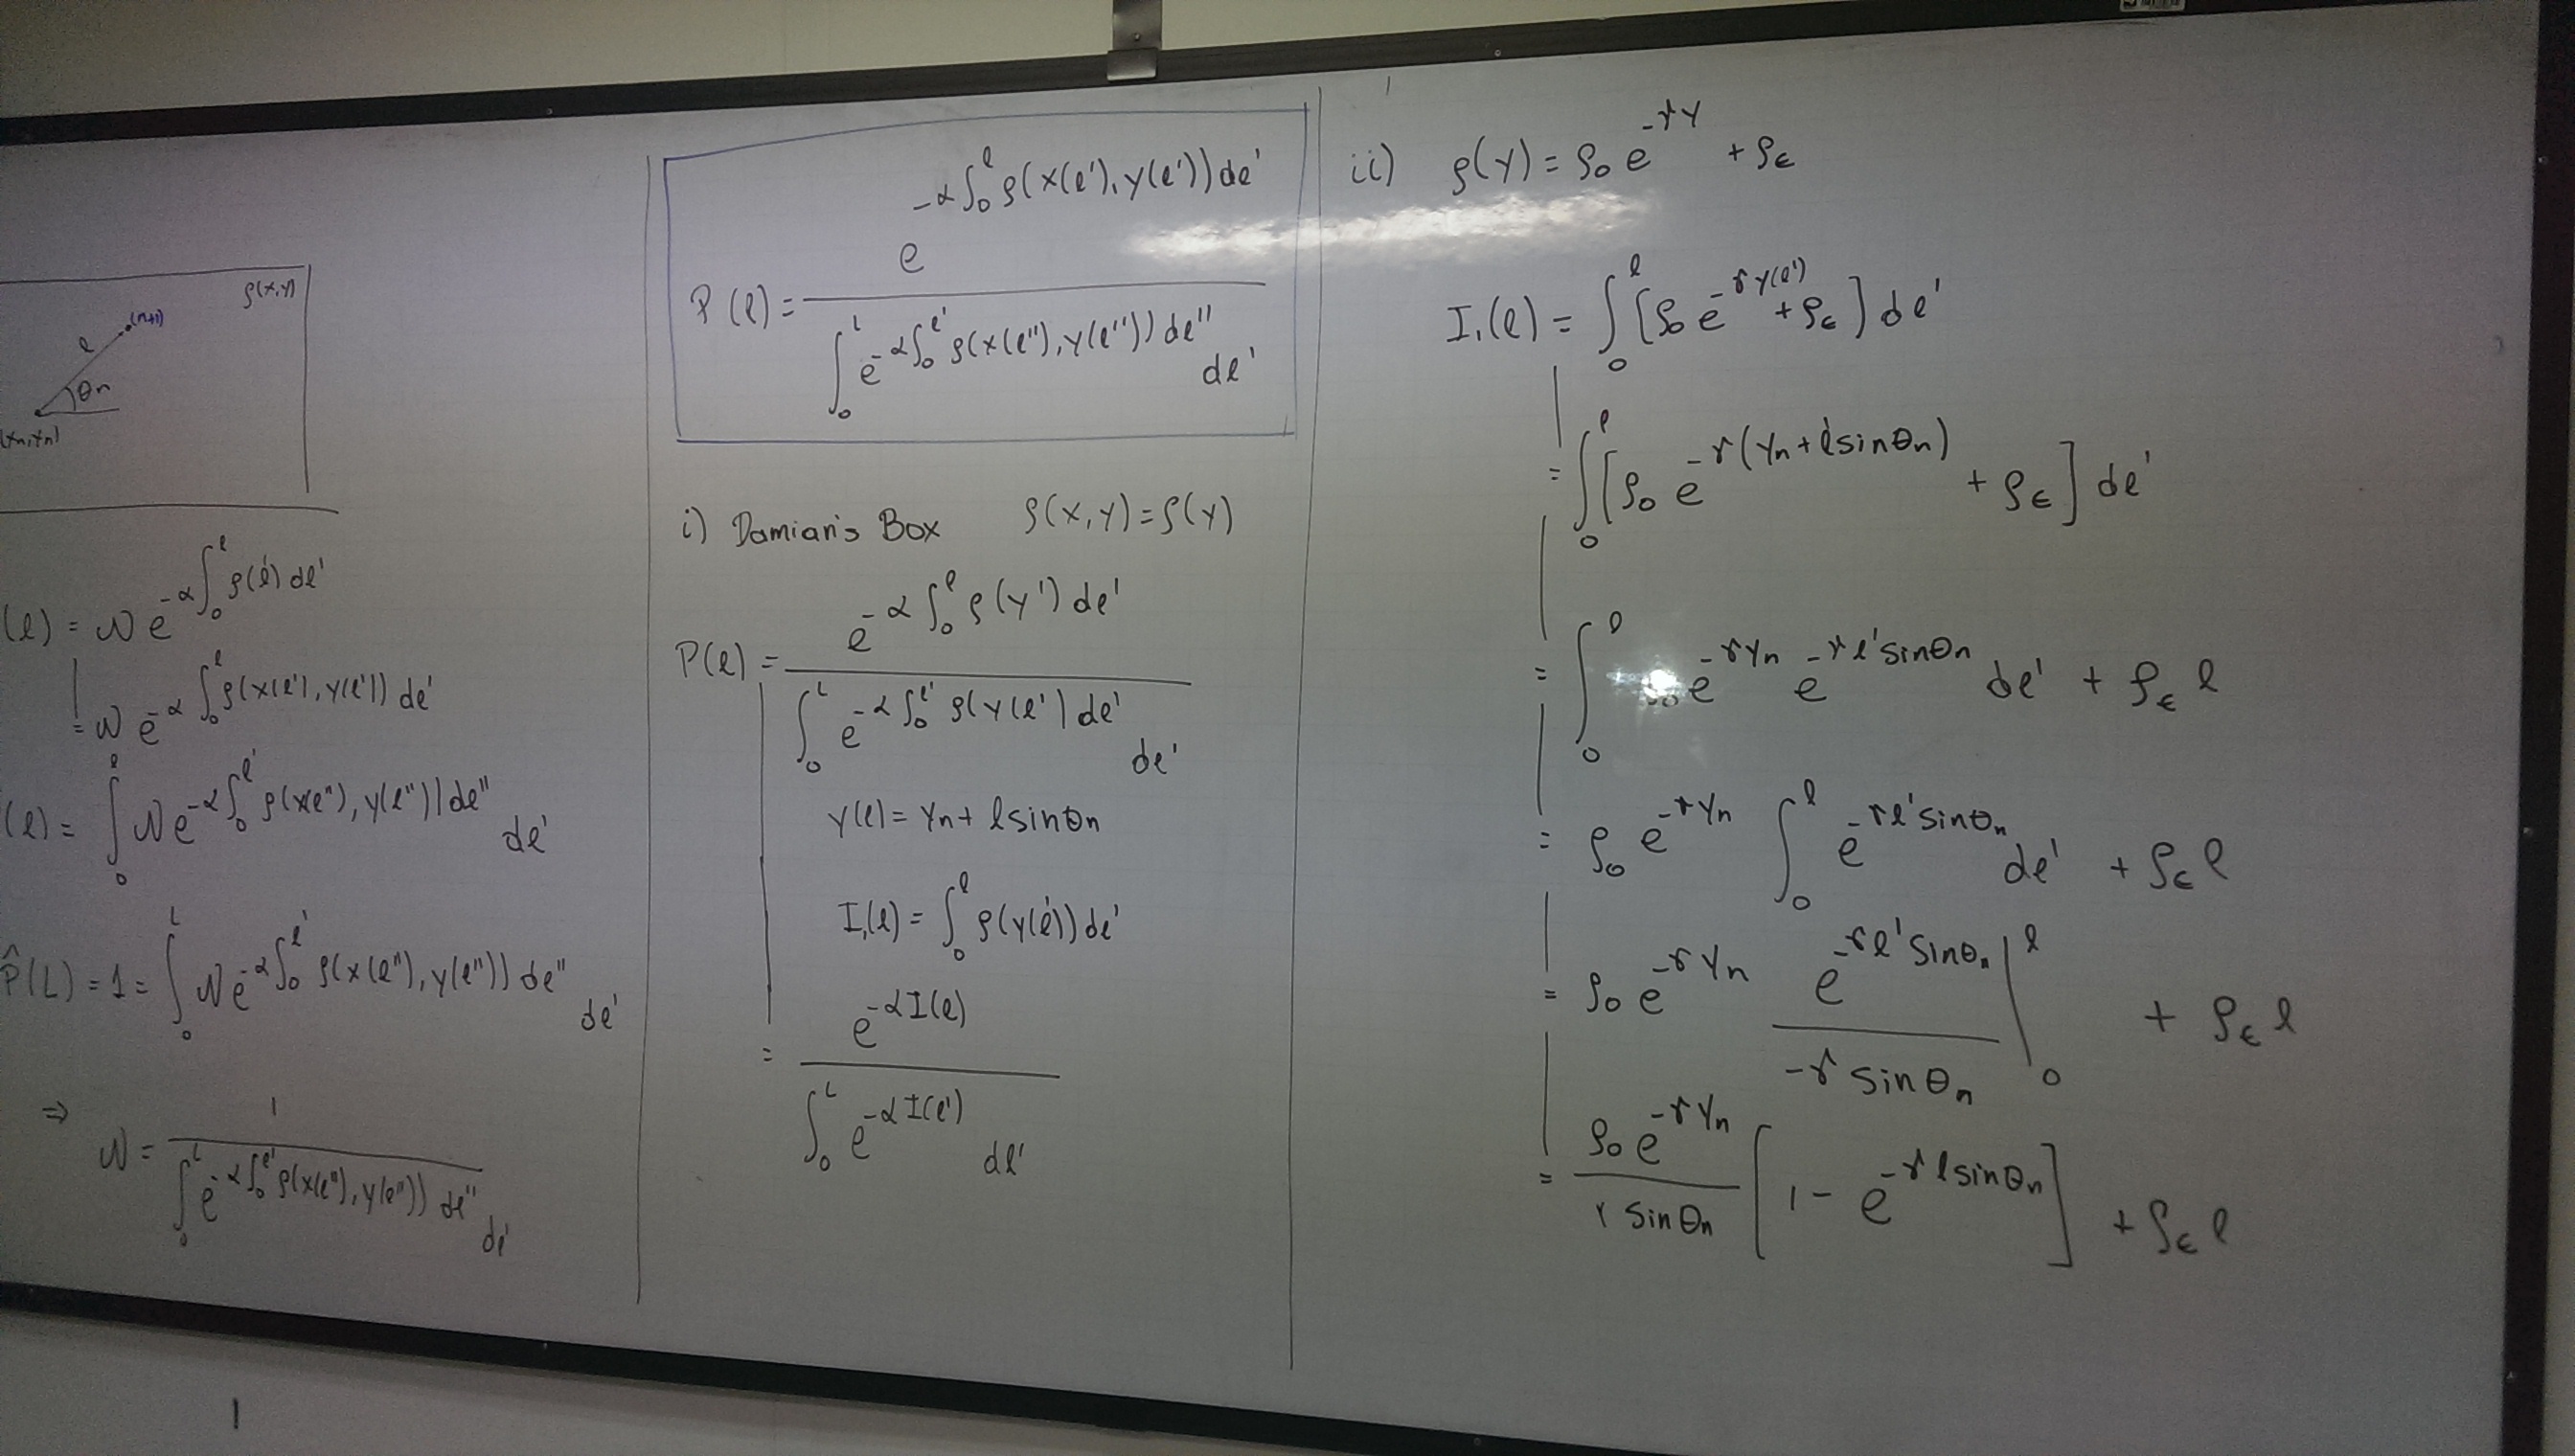 ρ(x,y)
(n+1)
ℓ
θn
(xn,yn)
(ℓ) = 𝒩 e^{-α∫_0^ℓ ρ(ℓ')dℓ'}
= 𝒩 e^{-α∫_0^ℓ ρ(x(ℓ'),y(ℓ'))dℓ'}
(ℓ) = ∫_0^ℓ 𝒩 e^{-α∫_0^{ℓ'} ρ(x(ℓ''),y(ℓ''))dℓ''} dℓ'
P̂(L) = 1 = ∫_0^L 𝒩 e^{-α∫_0^{ℓ'} ρ(x(ℓ''),y(ℓ''))dℓ''} dℓ'
⇒ 𝒩 = 1 / ∫_0^L e^{-α∫_0^{ℓ'} ρ(x(ℓ''),y(ℓ''))dℓ''} dℓ'
P(ℓ) = e^{-α∫_0^ℓ ρ(x(ℓ'),y(ℓ'))dℓ'} / ∫_0^L e^{-α∫_0^{ℓ'} ρ(x(ℓ''),y(ℓ''))dℓ''} dℓ'
i) Damian's Box ρ(x,y)=ρ(y)
P(ℓ) = e^{-α∫_0^ℓ ρ(y')dℓ'} / ∫_0^L e^{-α∫_0^{ℓ'} ρ(y(ℓ')dℓ'} dℓ'
y(ℓ) = yn + ℓ sinθn
I,(ℓ) = ∫_0^ℓ ρ(y(ℓ'))dℓ'
= e^{-αI(ℓ)} / ∫_0^L e^{-αI(ℓ')} dℓ'
ii) ρ(y) = ρ0 e^{-γy} + ρε
I,(ℓ) = ∫_0^ℓ [ρ0 e^{-γy(ℓ')} + ρε] dℓ'
= ∫_0^ℓ [ρ0 e^{-γ(yn+ℓ'sinθn)} + ρε] dℓ'
= ∫_0^ℓ e^{-γyn} e^{-γℓ'sinθn} dℓ' + ρε ℓ
= ρ0 e^{-γyn} ∫_0^ℓ e^{-γℓ'sinθn} dℓ' + ρε ℓ
= ρ0 e^{-γyn} e^{-γℓ'sinθn} / -γ sinθn |_0^ℓ + ρε ℓ
= ρ0 e^{-γyn} / γ sinθn [1 - e^{-γℓsinθn}] + ρε ℓ